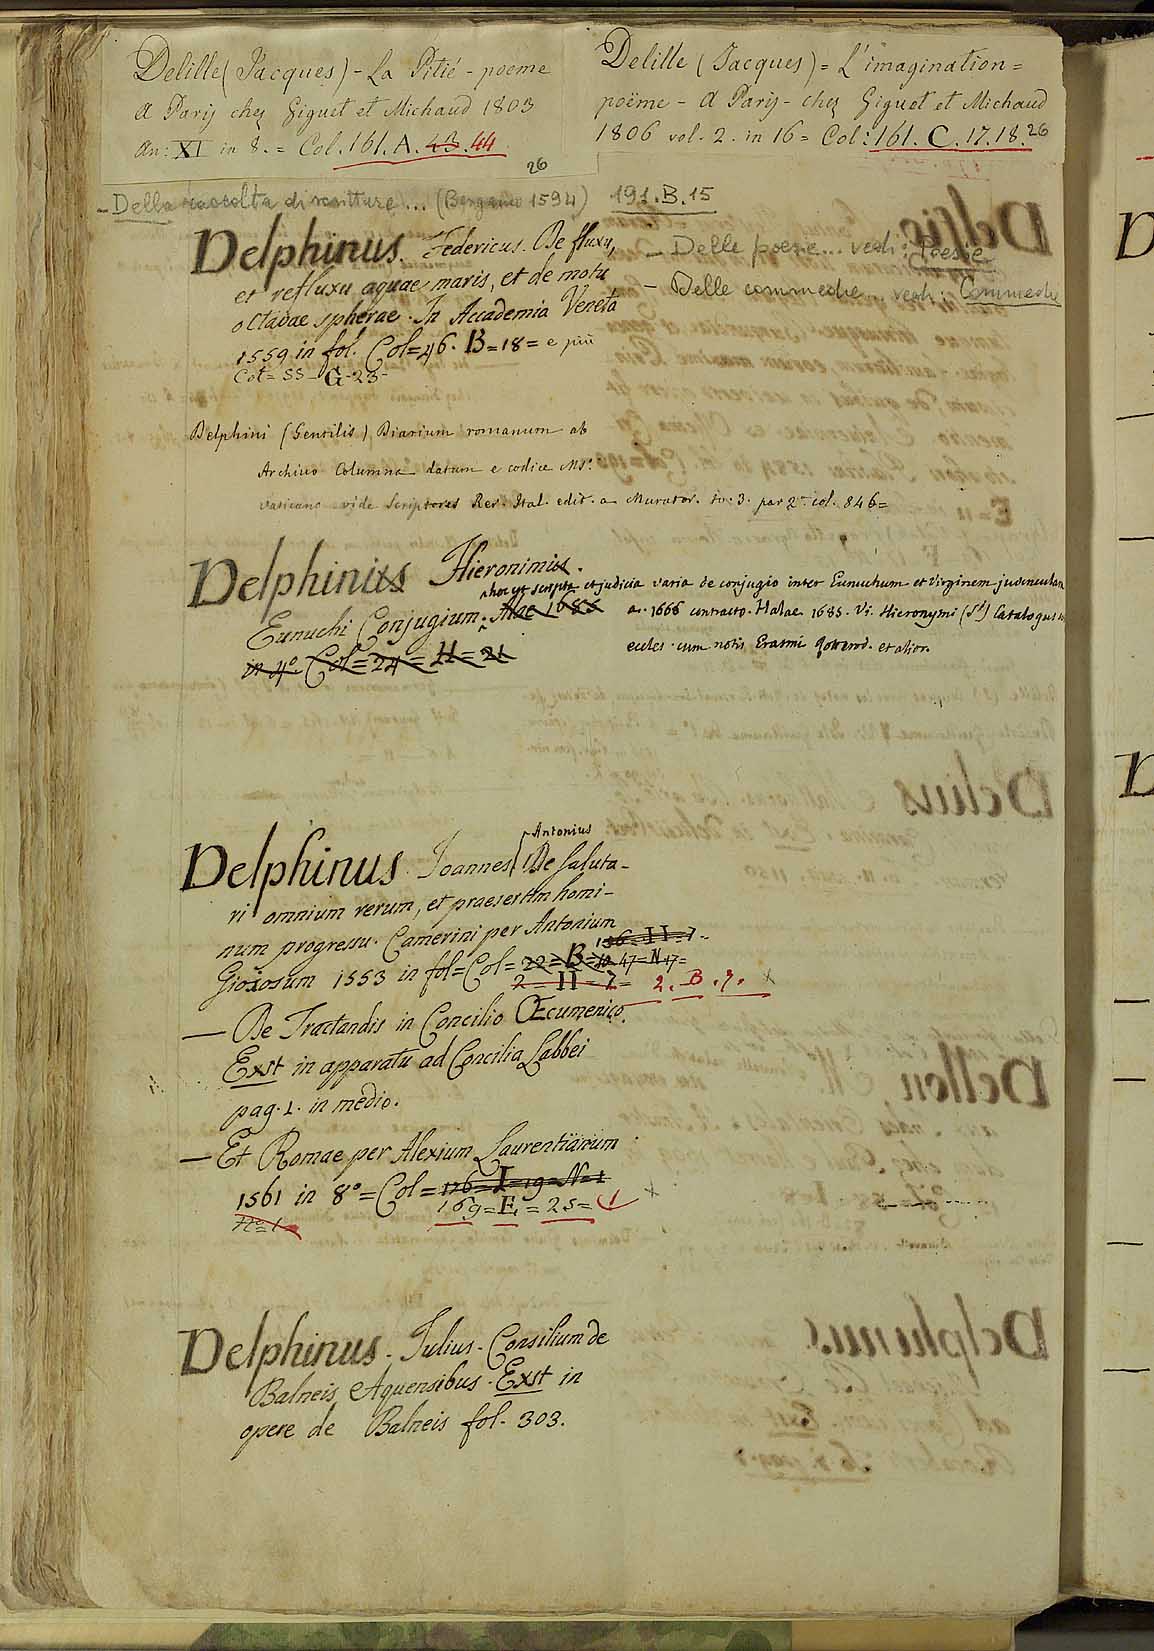 Delille (Jacques) - La Pitié - poeme
A Paris chez Giguet et Michaud 1803
An: XI in 8. = Col. 161. A. 43. 44
Delille (Jacques) = L'imagination =
poëme - A Paris - chez Giguet et Michaud
1806 vol. 2. in 16 = Col: 161. C. 17. 18. 26
26
- Della raccolta di scritture ... (Bergamo 1594) 191. B. 15
Delphinus. Federicus. De fluxu,
et refluxu aquae maris, et de motu
octavae spherae. In Academia Veneta
1559 in fol. Col = 46. B = 18 = e più
Col = SS - G - 23 -
- Delle poesie ... vedi: Poesie
- Delle commedie ... vedi: Commedie
Delphini (Gentilis) Diarium romanum ab
Archivo Columna datum e codice Ms.
vaticano vide Scriptores Rer. Ital. edit. a Murator. to: 3. par 2. col. 846 =
Delphinius Hieronimus.
Eunuchi Conjugium. hoc est scripta et judicia varia de conjugio inter Eunuchum et Virginem juvenculam
Alae 1685 a. 1666 contracto. Halae 1685. Vi. Hieronymi (S.i) Catalogus
in 4º Col = 24 = H = 21
eccles. cum notis Erasmi et alior.
Delphinus. Joannes Antonius De saluta-
ri omnium rerum, et praesertim homi-
num progressu. Camerini per Antonium
Giojosum 1553 in fol = Col = 22 = B = 10 47 = N 17 =
136 - II - 7 -
2 - II - 7 = 2. B. 7. x
— De Tractandis in Concilio Œcumenico.
Exst in apparatu ad Concilia Labbei
pag. 1. in medio.
— Et Romae per Alexium Laurentianum
1561 in 8º = Col = 126 = I = 19 = N = 1 x
169 = E = 25 =
Nº = 1
Delphinus. Julius. Consilium de
Balneis Aquensibus. Exst in
opere de Balneis fol. 303.